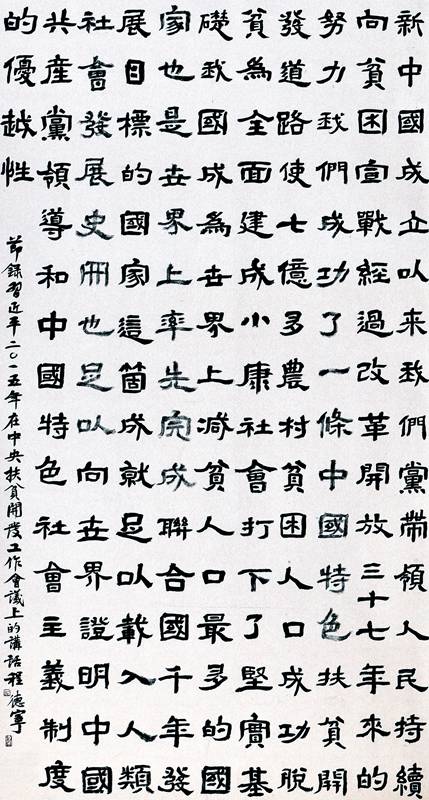 新中國成立以來我們黨帶領人民持續
向貧困宣戰經過改革開放三十七年來的
努力我們成功了一條中國特色扶貧開
發道路使七億多農村貧困人口成功脫
貧為全面建成小康社會打下了堅實基
礎我國成為世界上減貧人口最多的國
家也是世界上率先完成聯合國千年發
展目標的國家這箇成就足以載入人類
社會發展史冊也足以向世界證明中國
共產黨領導和中國特色社會主義制度
的優越性
節錄習近平二〇一五年在中央扶貧開發工作會議上的講話程德寧